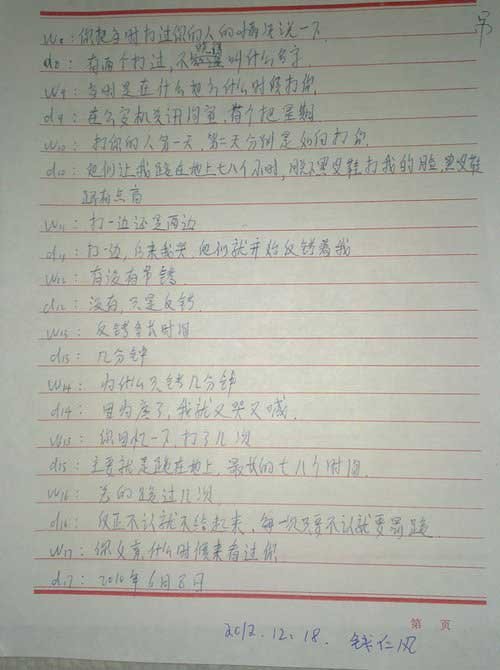 吊
W8：你把当时打过你的人的情况说一下
d8：有两个打过，不晓得叫什么名字
W9：当时是在什么地方什么时候打你
d9：在公安机关讯问室，有个把星期
W10：打你的人第一天，第二天分别是如何打你
d10：他们让我跪在地上七八个小时，用黑皮鞋打我的脸，黑皮鞋
还有点高
W11：打一边还是两边
d11：打一边，后来我哭，他们就开始反铐着我
W12：有没有吊铐
d12：没有，只是反铐．
W13：反铐多长时间
d13：几分钟
W14：为什么只铐几分钟
d14：因为疼了，我就又哭又喊．
W15：你回忆一下，打了几次
d15：主要就是跪在地上，最长的七八个时间．
W16：总的跪过几次
d16：反正不认就不给起来，每一次只要不认就要罚跪．
W17：你父亲什么时候来看过你
d17：2010年6月8日
第 页
2012.12.18. 钱仁风